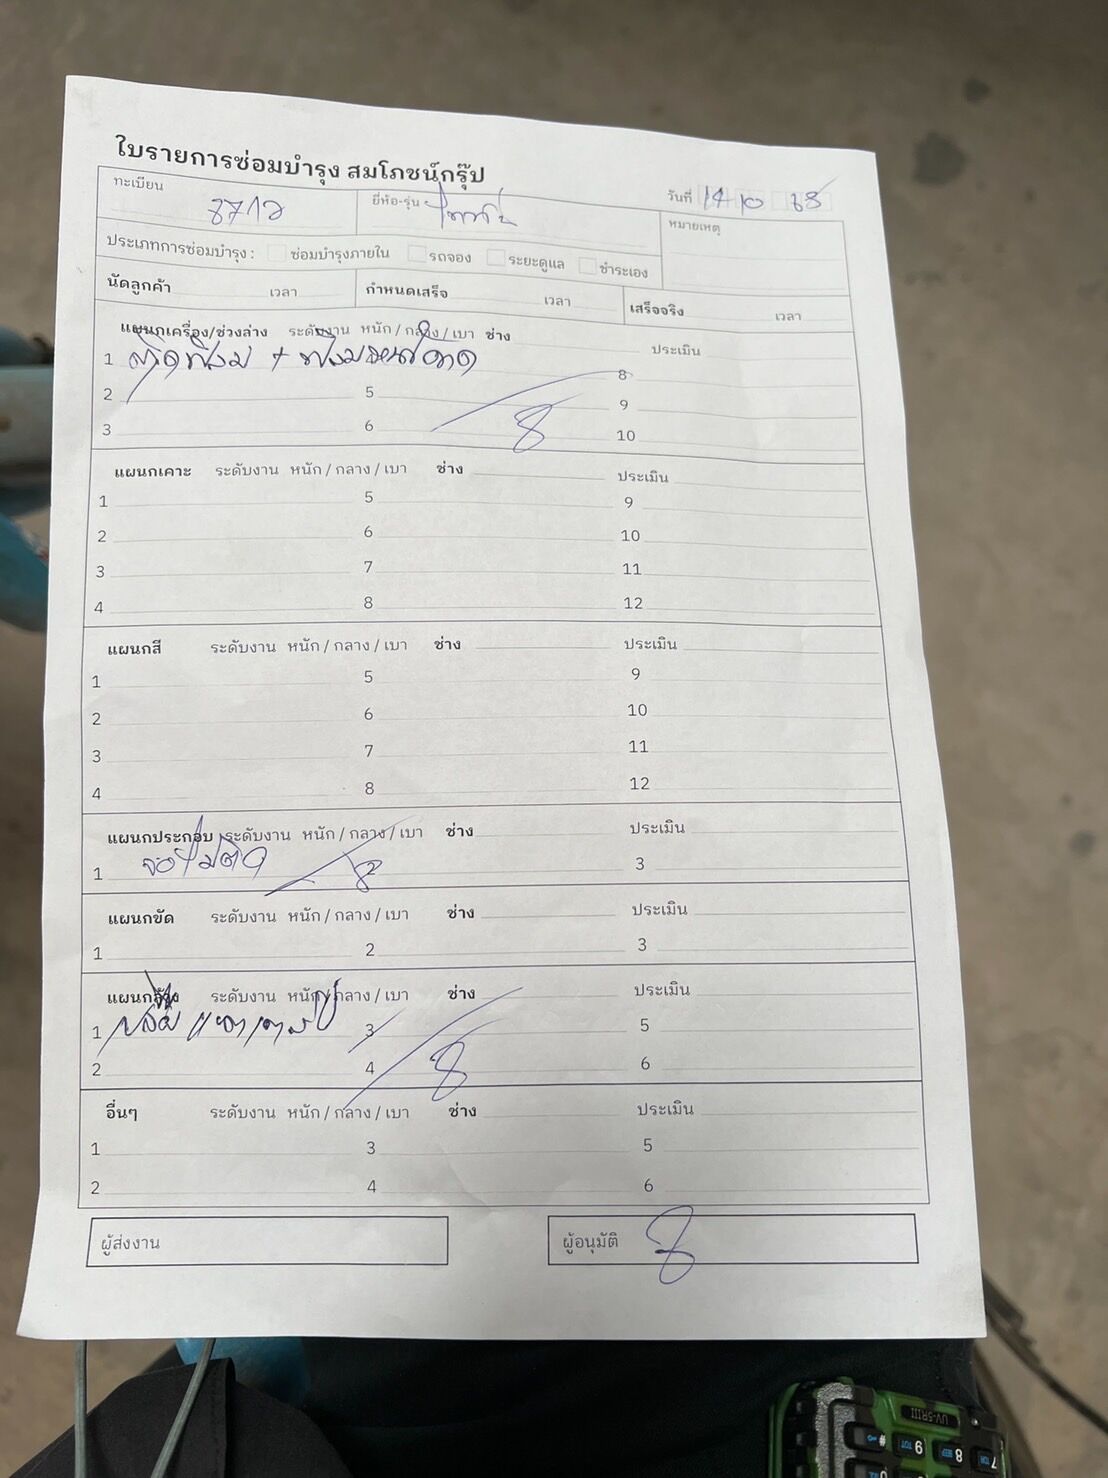 ใบรายการซ่อมบำรุง สมโภชน์กรุ๊ป
ทะเบียน 8712 ยี่ห้อ-รุ่น วันที่ 14 10 68
หมายเหตุ
ประเภทการซ่อมบำรุง : ซ่อมบำรุงภายใน รถจอง ระยะดูแล ชำระเอง
นัดลูกค้า เวลา กำหนดเสร็จ เวลา เสร็จจริง เวลา
แผนกเครื่อง/ช่วงล่าง ระดับงาน หนัก / กลาง / เบา ช่าง ประเมิน
1 + 8
2 5 9
3 6 10
แผนกเคาะ ระดับงาน หนัก / กลาง / เบา ช่าง ประเมิน
1 5 9
2 6 10
3 7 11
4 8 12
แผนกสี ระดับงาน หนัก / กลาง / เบา ช่าง ประเมิน
1 5 9
2 6 10
3 7 11
4 8 12
แผนกประกอบ ระดับงาน หนัก / กลาง / เบา ช่าง ประเมิน
1 จอไม่ติด 2 3
แผนกขัด ระดับงาน หนัก / กลาง / เบา ช่าง ประเมิน
1 2 3
แผนกล้าง ระดับงาน หนัก / กลาง / เบา ช่าง ประเมิน
1 3 5
2 4 6
อื่นๆ ระดับงาน หนัก / กลาง / เบา ช่าง ประเมิน
1 3 5
2 4 6
ผู้ส่งงาน ผู้อนุมัติ
UV-5RIII